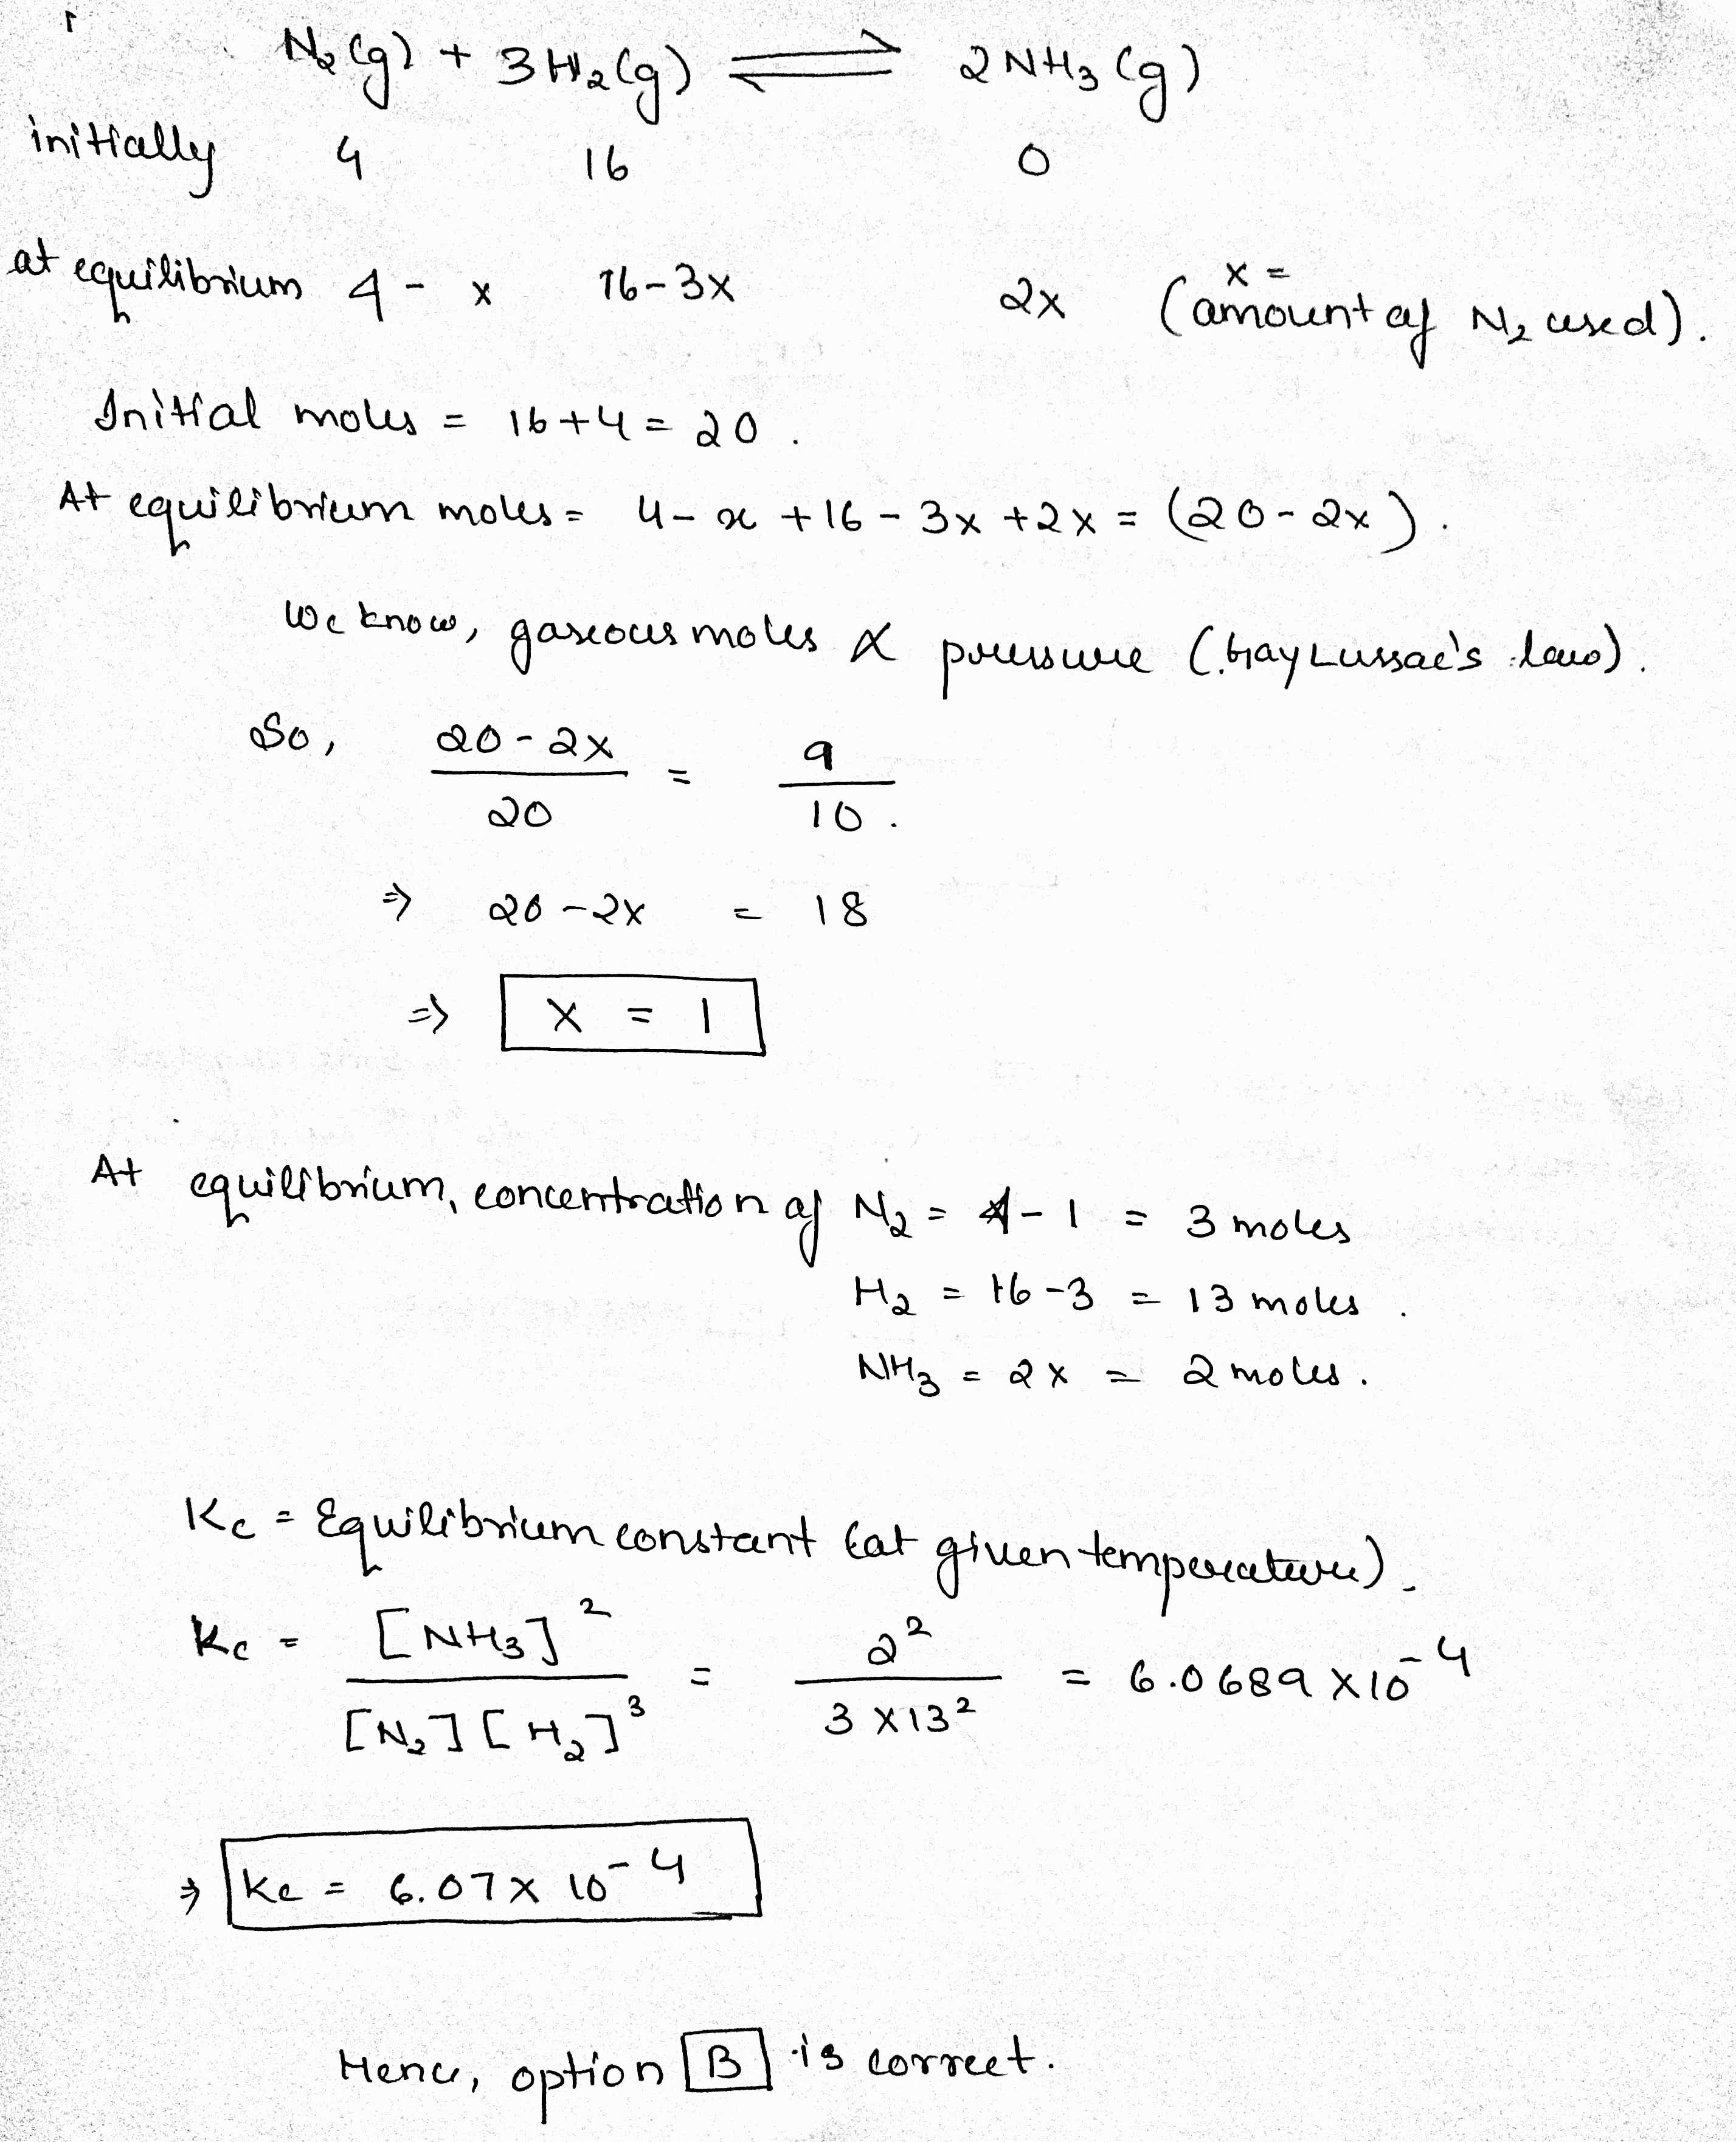 N₂(g) + 3H₂(g) ⇌ 2NH₃(g)
initially 4 16 0
at equilibrium 4 - x 16-3x 2x (x = amount of N₂ used).
Initial moles = 16+4 = 20.
At equilibrium moles = 4-x +16-3x+2x = (20-2x).
We know, gaseous moles ∝ pressure (Gay Lussac's law).
So, (20-2x)/20 = 9/10.
⇒ 20-2x = 18
⇒ x = 1
At equilibrium, concentration of N₂ = 4-1 = 3 moles
H₂ = 16-3 = 13 moles.
NH₃ = 2x = 2 moles.
Kc = Equilibrium constant (at given temperature).
Kc = [NH₃]² / [N₂][H₂]³ = 2² / 3×13² = 6.0689×10⁻⁴
⇒ Kc = 6.07×10⁻⁴
Hence, option B is correct.